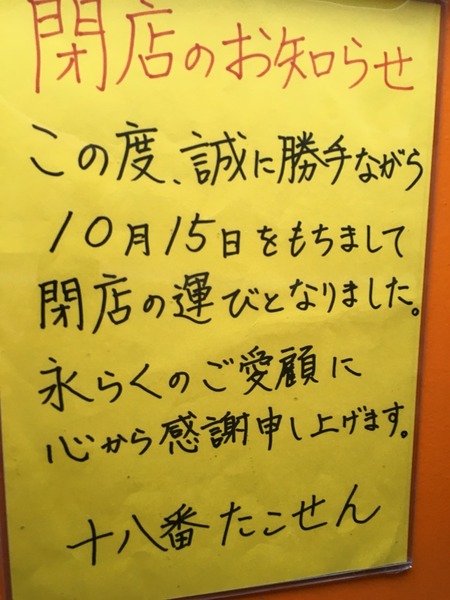 閉店のお知らせ
この度、誠に勝手ながら
10月15日をもちまして
閉店の運びとなりました。
永らくのご愛顧に
心から感謝申し上げます。
十八番たこせん